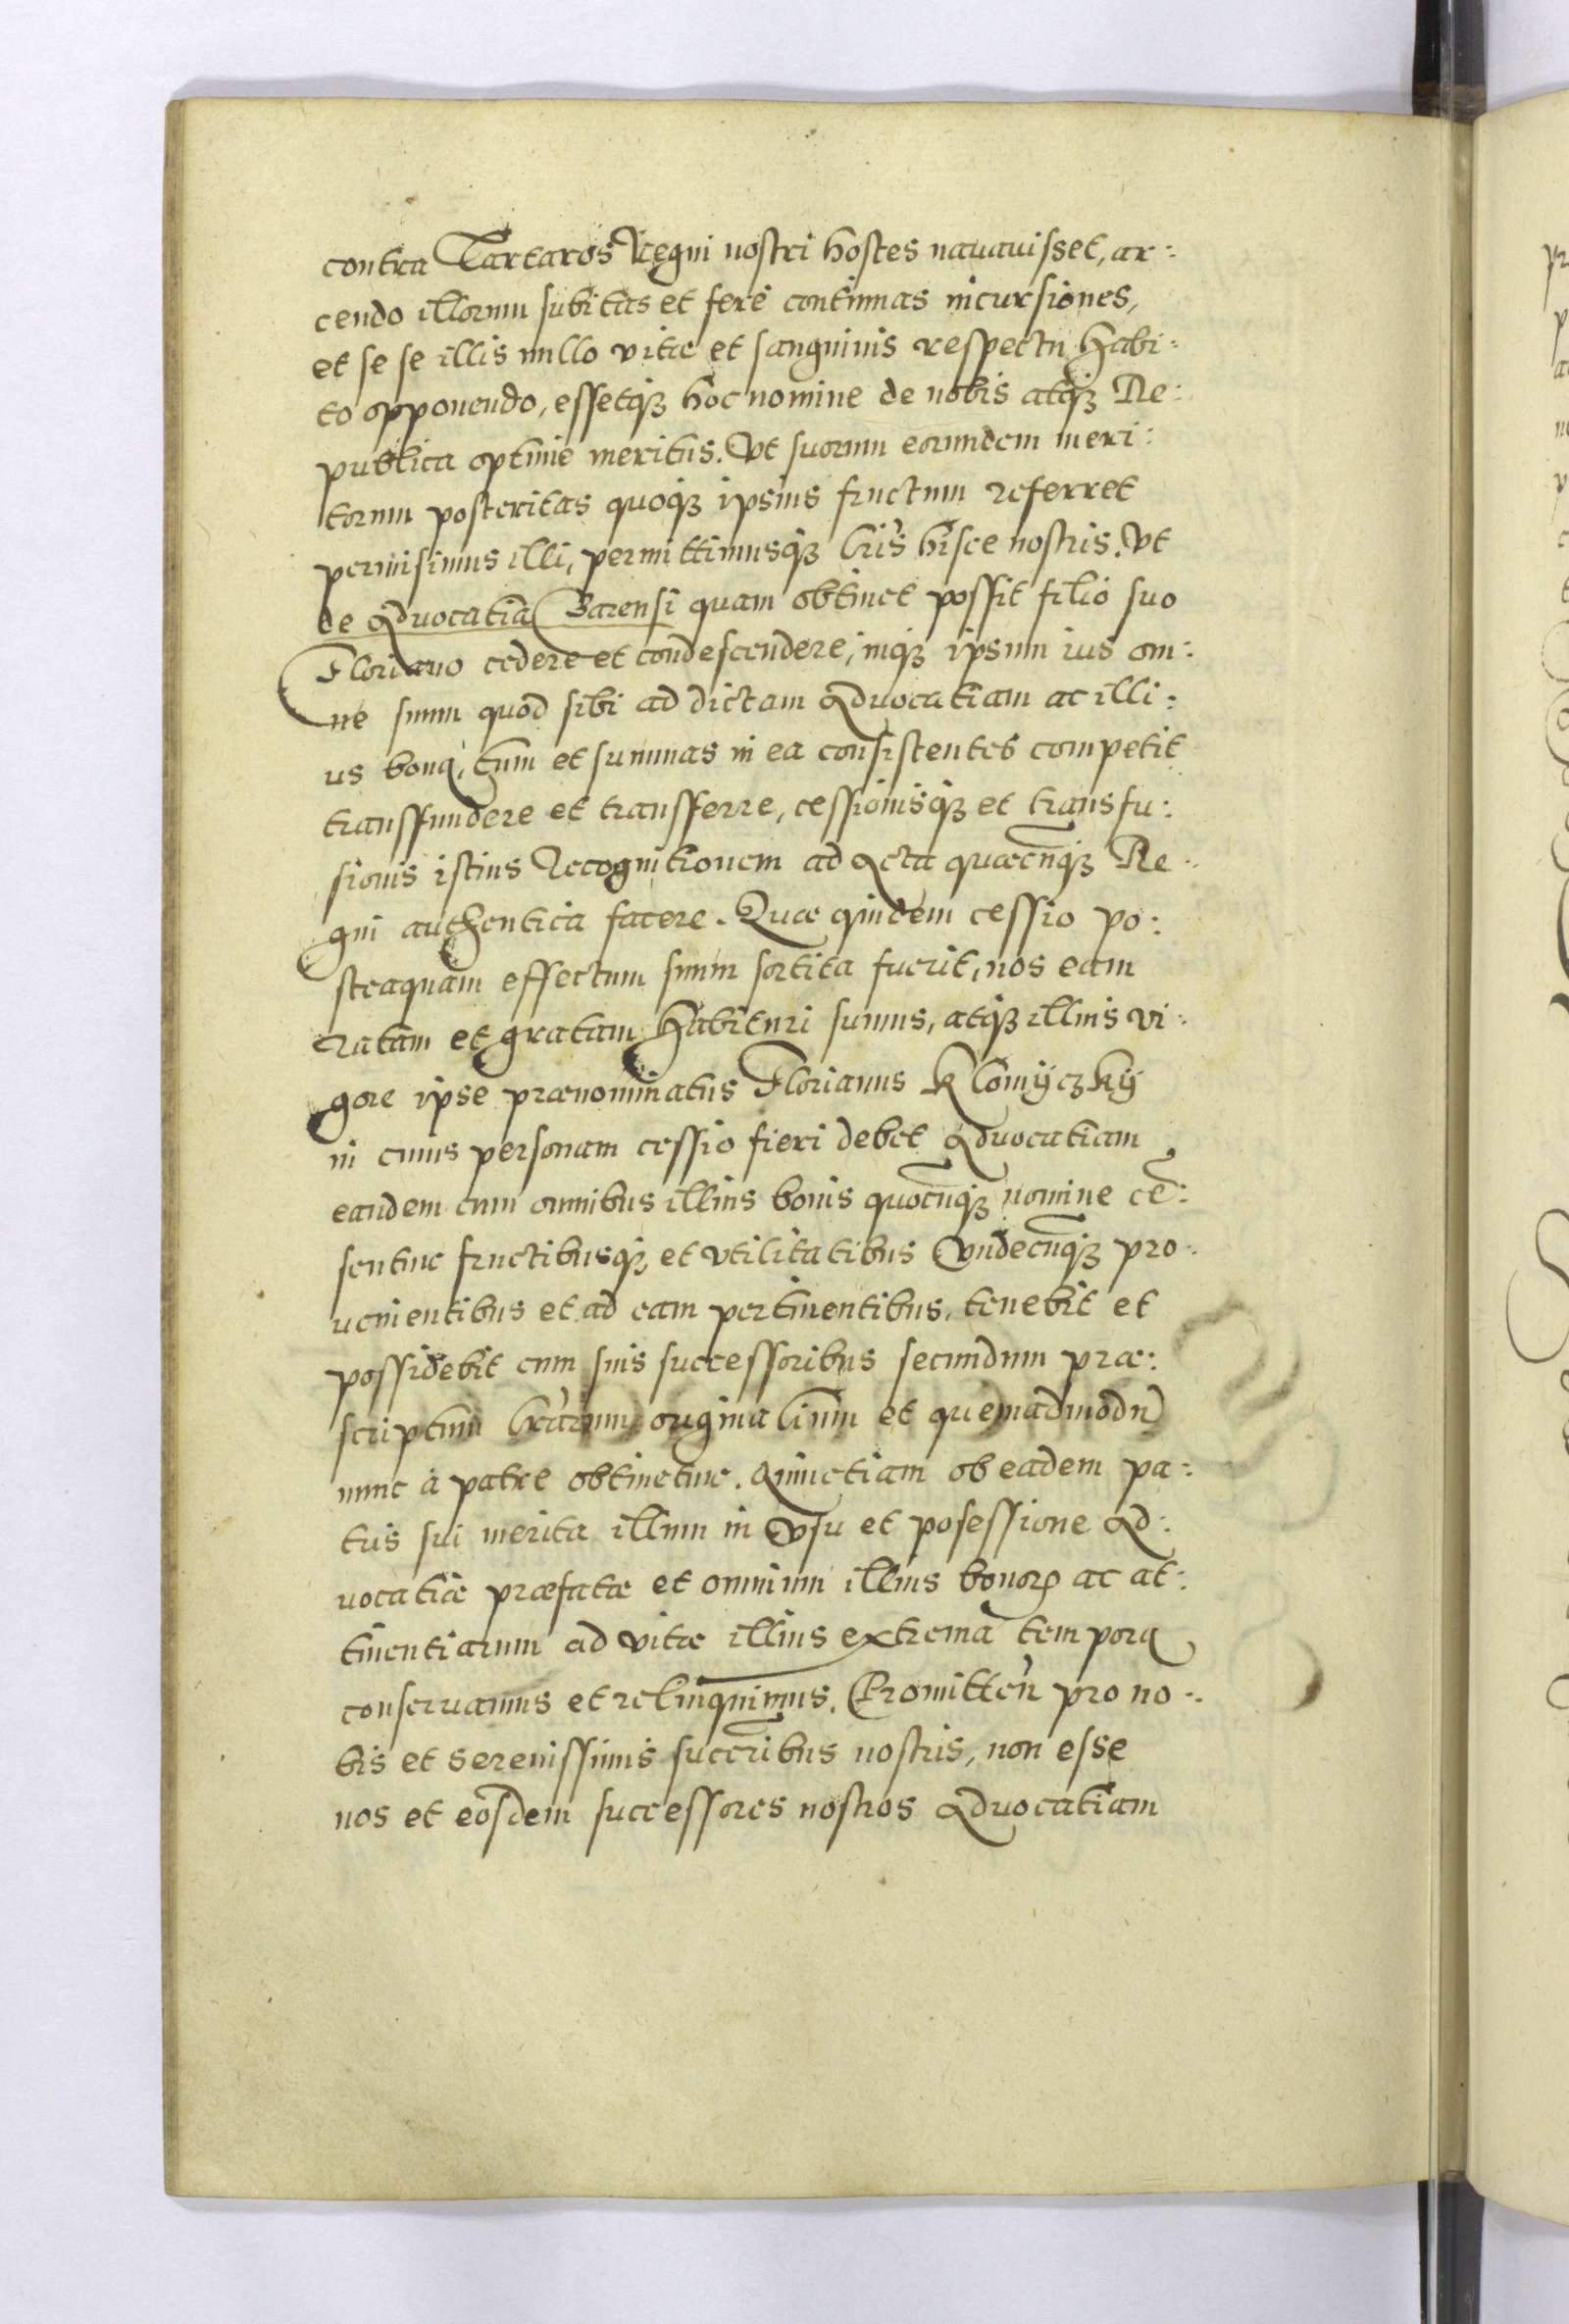 contra Tartaros Regni nostri hostes nauauisset, ar:
cendo illorum subitas et fere continuas incursiones,
et se se illis nullo vitae et sanguinis respectu Habi:
to opponendo, essetq₃ hoc nomine de nobis atq₃ Re:
publica optime meritus. Vt suorum eorundem meri:
torum posteritas quoq₃ ipsius fructum referret
permisimus illi, permittimusq₃ lr̃is hisce nostris. Vt
de Aduocatia Barensi quam obtinet possit filio suo
Floriano cedere et condescendere, inq₃ ipsum ius om:
ne suum quod sibi ad dictam Aduocatiam ac illi:
us bona, tum et summas in ea consistentes competit
transfundere et transferre, cessionisq₃ et transfu:
sionis istius Recognitionem ad Acta quaecunq₃ Re:
gni authentica facere. Quae quidem cessio po:
steaquam effectum suum sortita fuerit, nos eam
ratam et gratam Habituri sumus, atq₃ illius vi:
gore ipse praenominatus Florianus Klomyczky
in cuius personam cessio fieri debet Aduocatiam
eandem cum omnibus illius bonis quocunq₃ nomine cē:
sentur fructibusq₃ et vtilitatibus Vndecunq₃ pro:
uenientibus et ad eam pertinentibus, tenebit et
possidebit cum suis successoribus secundum prae:
scriptum lr̃arum originalium et quemadmodū
nunc à patre obtinetur. Quinetiam ob eadem pa:
tris sui merita illum in Vsu et posessione Ad:
uocatiae praefatae et omnium illius bonorꝝ ac at:
tinentiarum ad vitae illius extrema tempora
conseruamus et relinquimus. Promitteñ pro no:
bis et Serenissimis succ̃ribus nostris, non esse
nos et eosdem successores nostros Aduocatiam